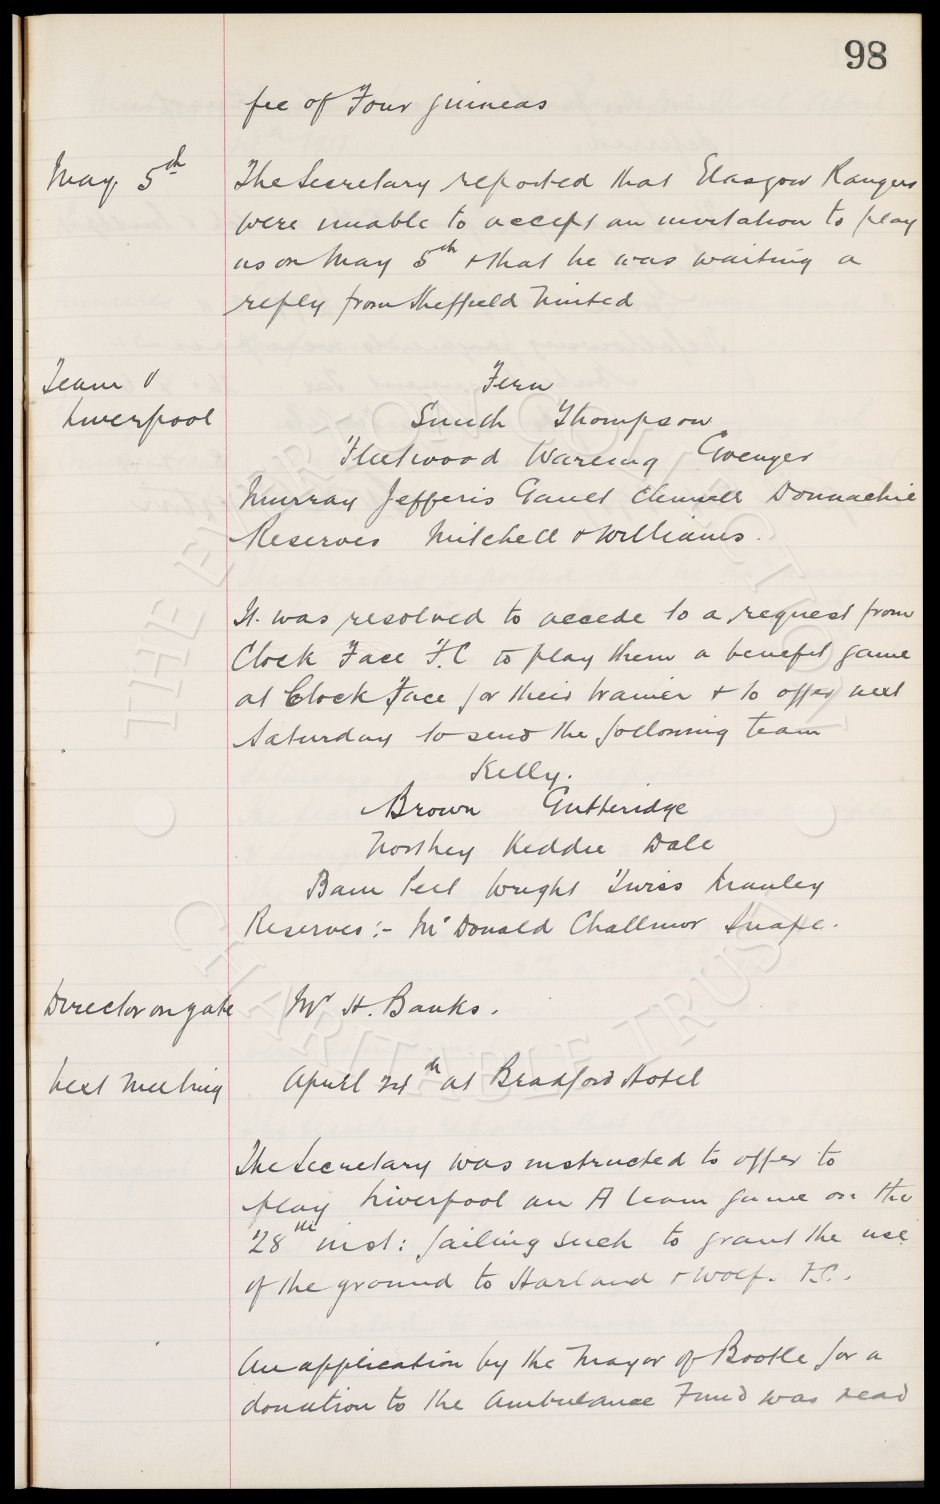 98
fee of Four guineas
May 5th The Secretary reported that Glasgow Rangers
were unable to accept an invitation to play
us on May 5th & that he was waiting a
reply from Sheffield United
Team v Fern
Liverpool Smith Thompson
Fleetwood Wareing Grenyer
Murray Jefferis Gault Chennell Donnachie
Reserves Mitchell & Williams.
It was resolved to accede to a request from
Clock Face F.C to play them a benefit game
at Clock Face for their trainer & to offer next
Saturday to send the following team
Kelly.
Brown Gutteridge
Northey Keddie Dale
Bam Peet Wright Twiss Manley
Reserves:- McDonald Challinor Snape.
Director on gate Mr H. Banks.
Next Meeting April 24th at Bradford Hotel
The Secretary was instructed to offer to
play Liverpool an A team game on the
28th inst: failing such to grant the use
of the ground to Harland & Wolf. F.C.
An application by the Mayor of Bootle for a
donation to the Ambulance Fund was read
THE EVERTON COLLECTION
CHARITABLE TRUST